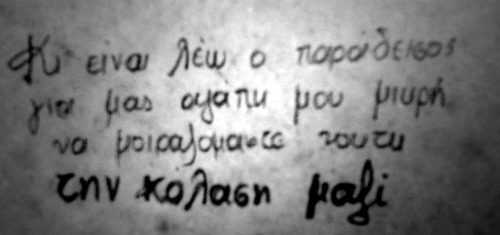 Κι είναι λέω ο παράδεισος
για μας αγάπη μου μικρή
να μοιραζόμαστε τούτη
την κόλαση μαζί